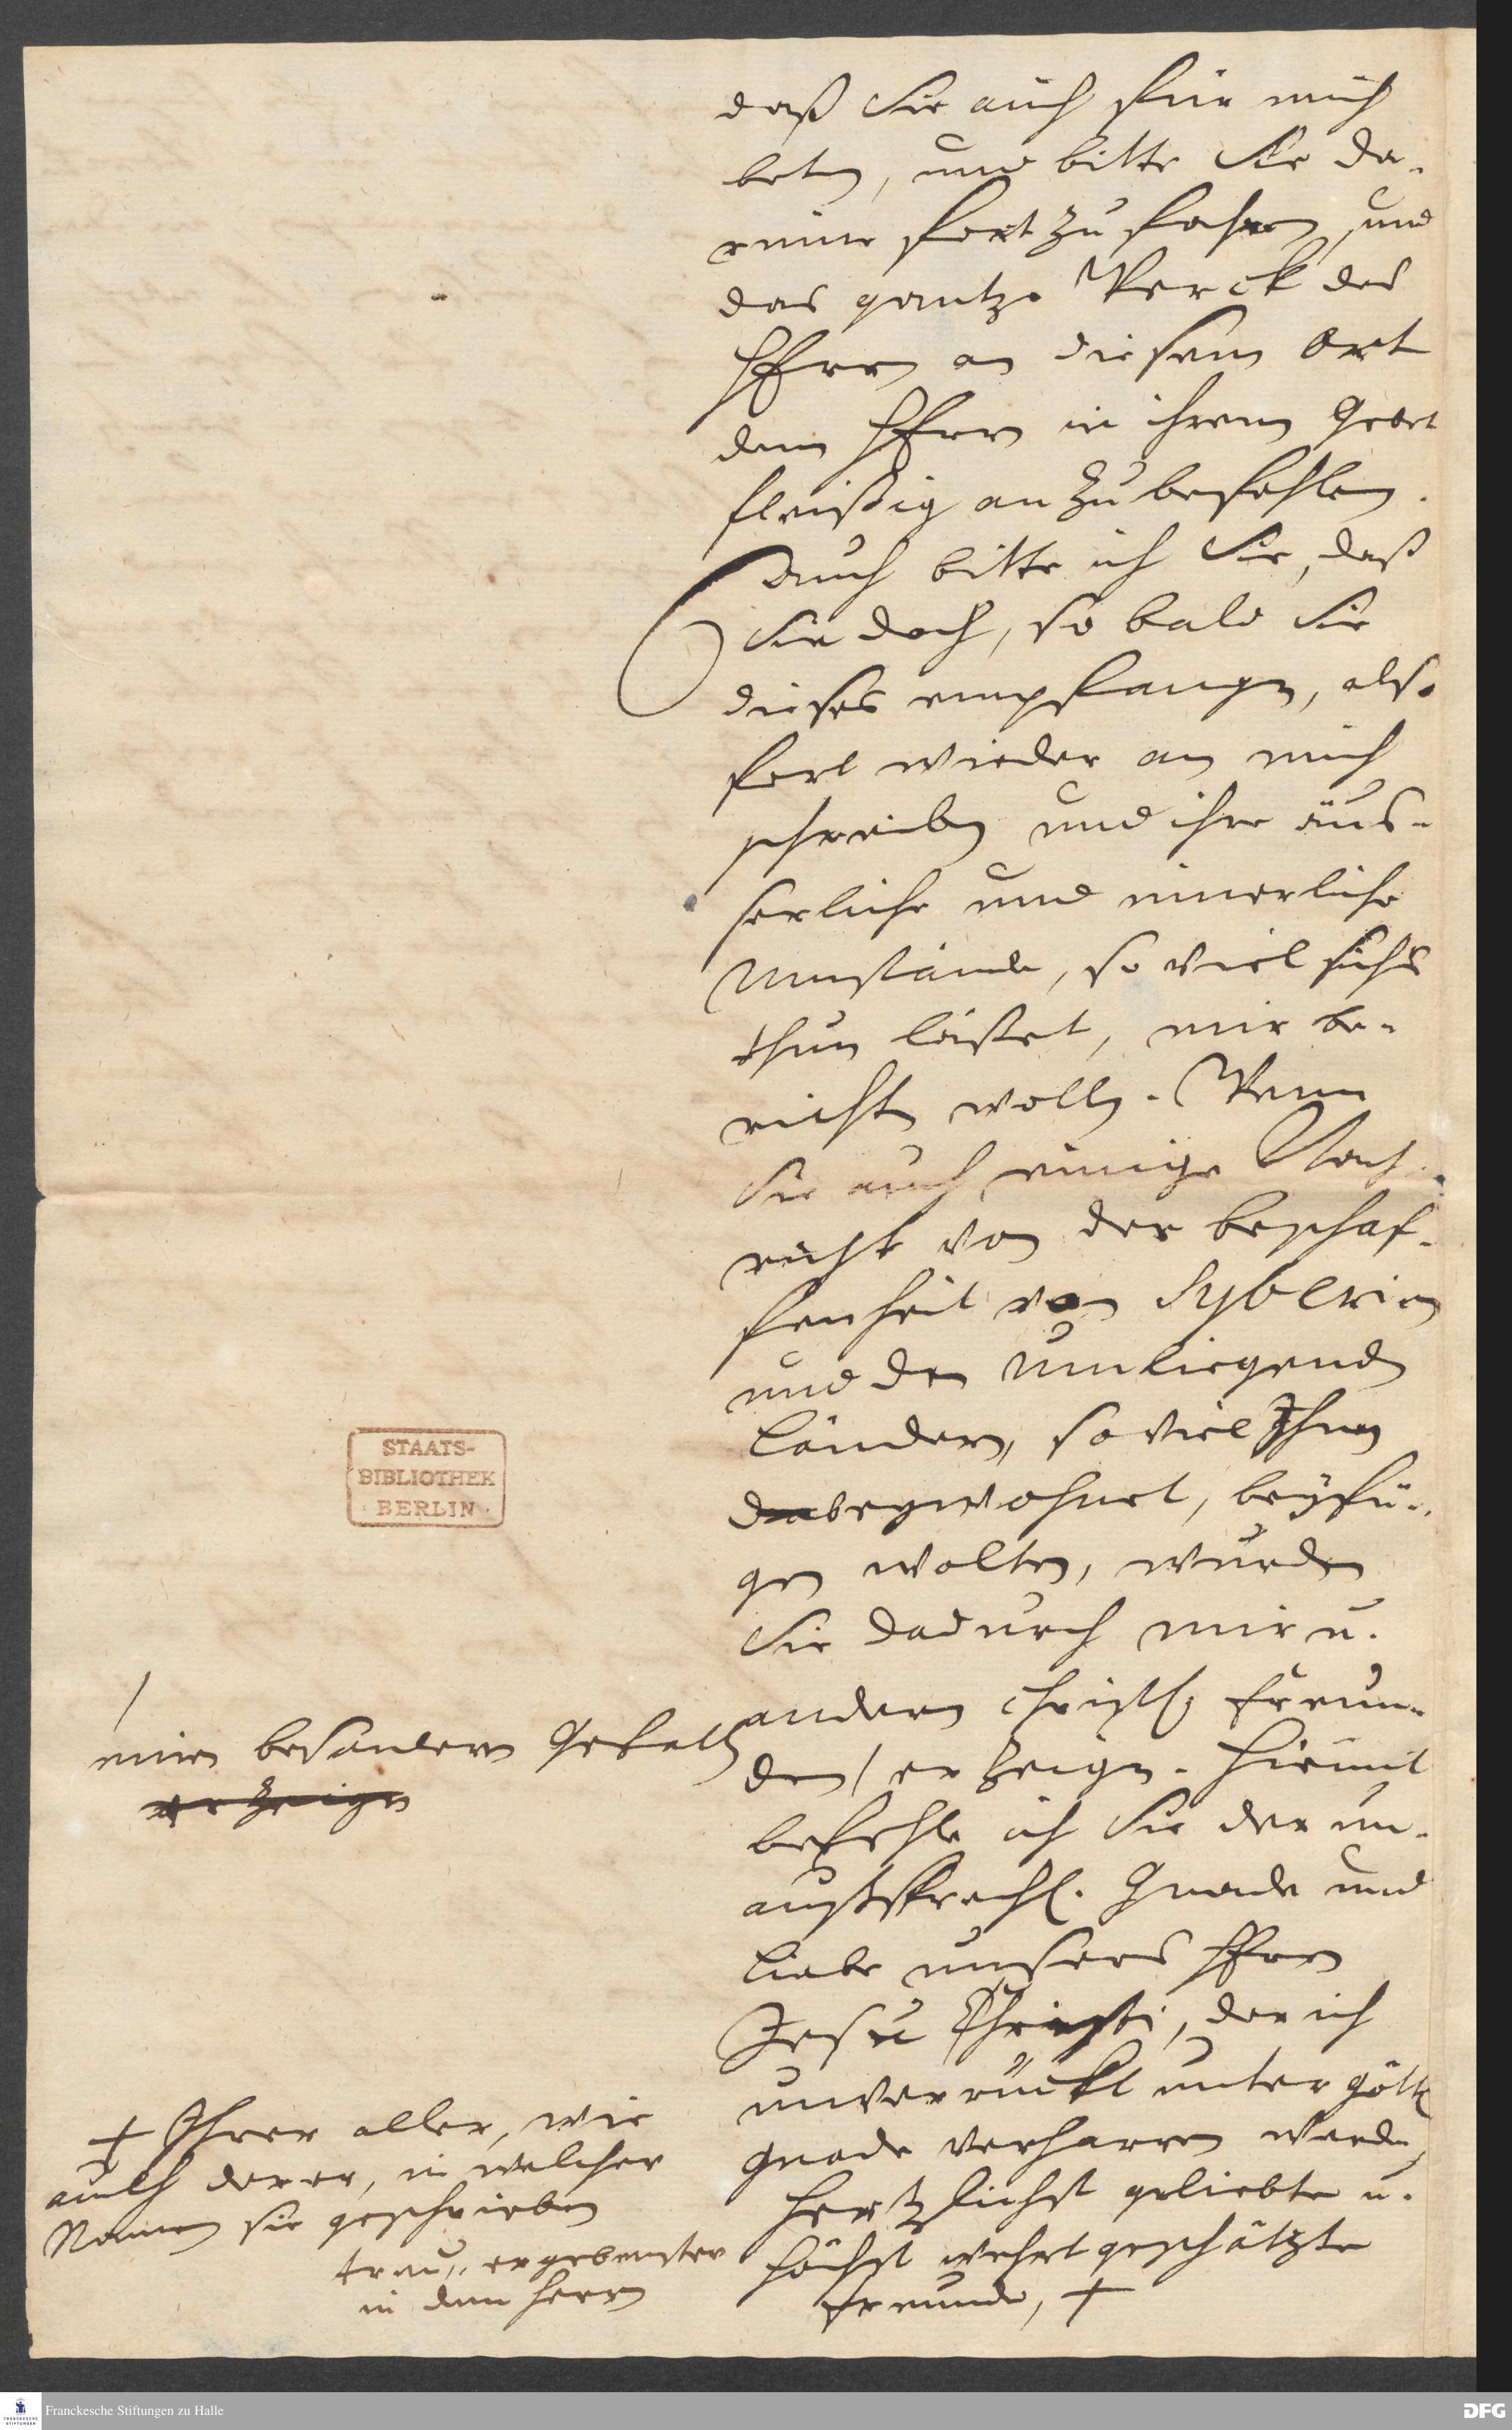 daß Sie auch für mich
beten, und bitte Sie da-
rinne fort zu fahren, und
das gantze Werck des
HErrn an diesem Ort
dem HErrn in ihrem Gebet
fleißig an zu befehlen.
Auch bitte ich Sie, daß
Sie doch, so bald Sie
dieses empfangen, also
fort wieder an mich
schreiben und ihre äus-
serliche und innerliche
Umstände, so viel sichs
thun läßet, mir be-
richten wollen. Wenn
Sie auch einige Nach-
richt von der beschaf-
fenheit von Syberien
und den umliegenden
Ländern, so viel Ihnen
da beywohnet, beyfü-
gen wolten, würden
Sie dadurch mir u.
andern christl. Freun-
den / erzeigen. Hiemit
befehle ich Sie der un-
aussprechl. Gnade und
Liebe unsers HErrn
Jesu Christi, der ich
unverrückt unter göttl.
Gnade verharren werde,
Hertzlichst geliebte u.
höchst wehrtgeschätzte
Freunde, +
/
einen besondern Gefallen
erzeigen
+ Ihrer aller, wie
auch derer, in welcher
Namen sie geschrieben
treu,, ergebenster
in dem Herrn
STAATS-
BIBLIOTHEK
BERLIN
Franckesche Stiftungen zu Halle
DFG